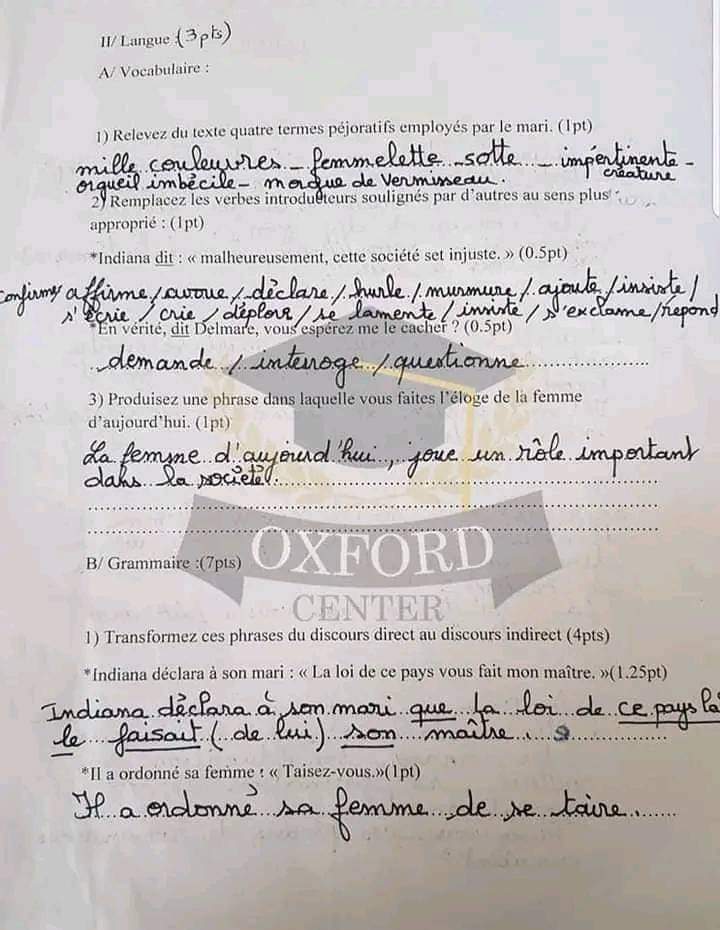 II/ Langue :(3pts)
A/ Vocabulaire :
1) Relevez du texte quatre termes péjoratifs employés par le mari. (1pt)
mille couleuvres - femmelette - sotte - impertinente -
créature
orgueil imbécile - morgue de vermisseau.
2) Remplacez les verbes introducteurs soulignés par d'autres au sens plus
approprié : (1pt)
*Indiana dit : « malheureusement, cette société set injuste. » (0.5pt)
confirme/ affirme / avoue / déclare / hurle / murmure / ajoute / insiste /
s'écrie / crie / déplore / se lamente / insiste / s'exclame / répond
*En vérité, dit Delmare, vous espérez me le cacher ? (0.5pt)
demande / interroge / questionne
3) Produisez une phrase dans laquelle vous faites l'éloge de la femme
d'aujourd'hui. (1pt)
La femme d'aujourd'hui, joue un rôle important
dans la société.
OXFORD
CENTER
B/ Grammaire :(7pts)
1) Transformez ces phrases du discours direct au discours indirect (4pts)
*Indiana déclara à son mari : « La loi de ce pays vous fait mon maître. »(1.25pt)
Indiana déclara à son mari que la loi de ce pays là
le faisait ( de lui ) son maître.
*Il a ordonné sa femme : « Taisez-vous.»(1pt)
Il a ordonné sa femme de se taire.